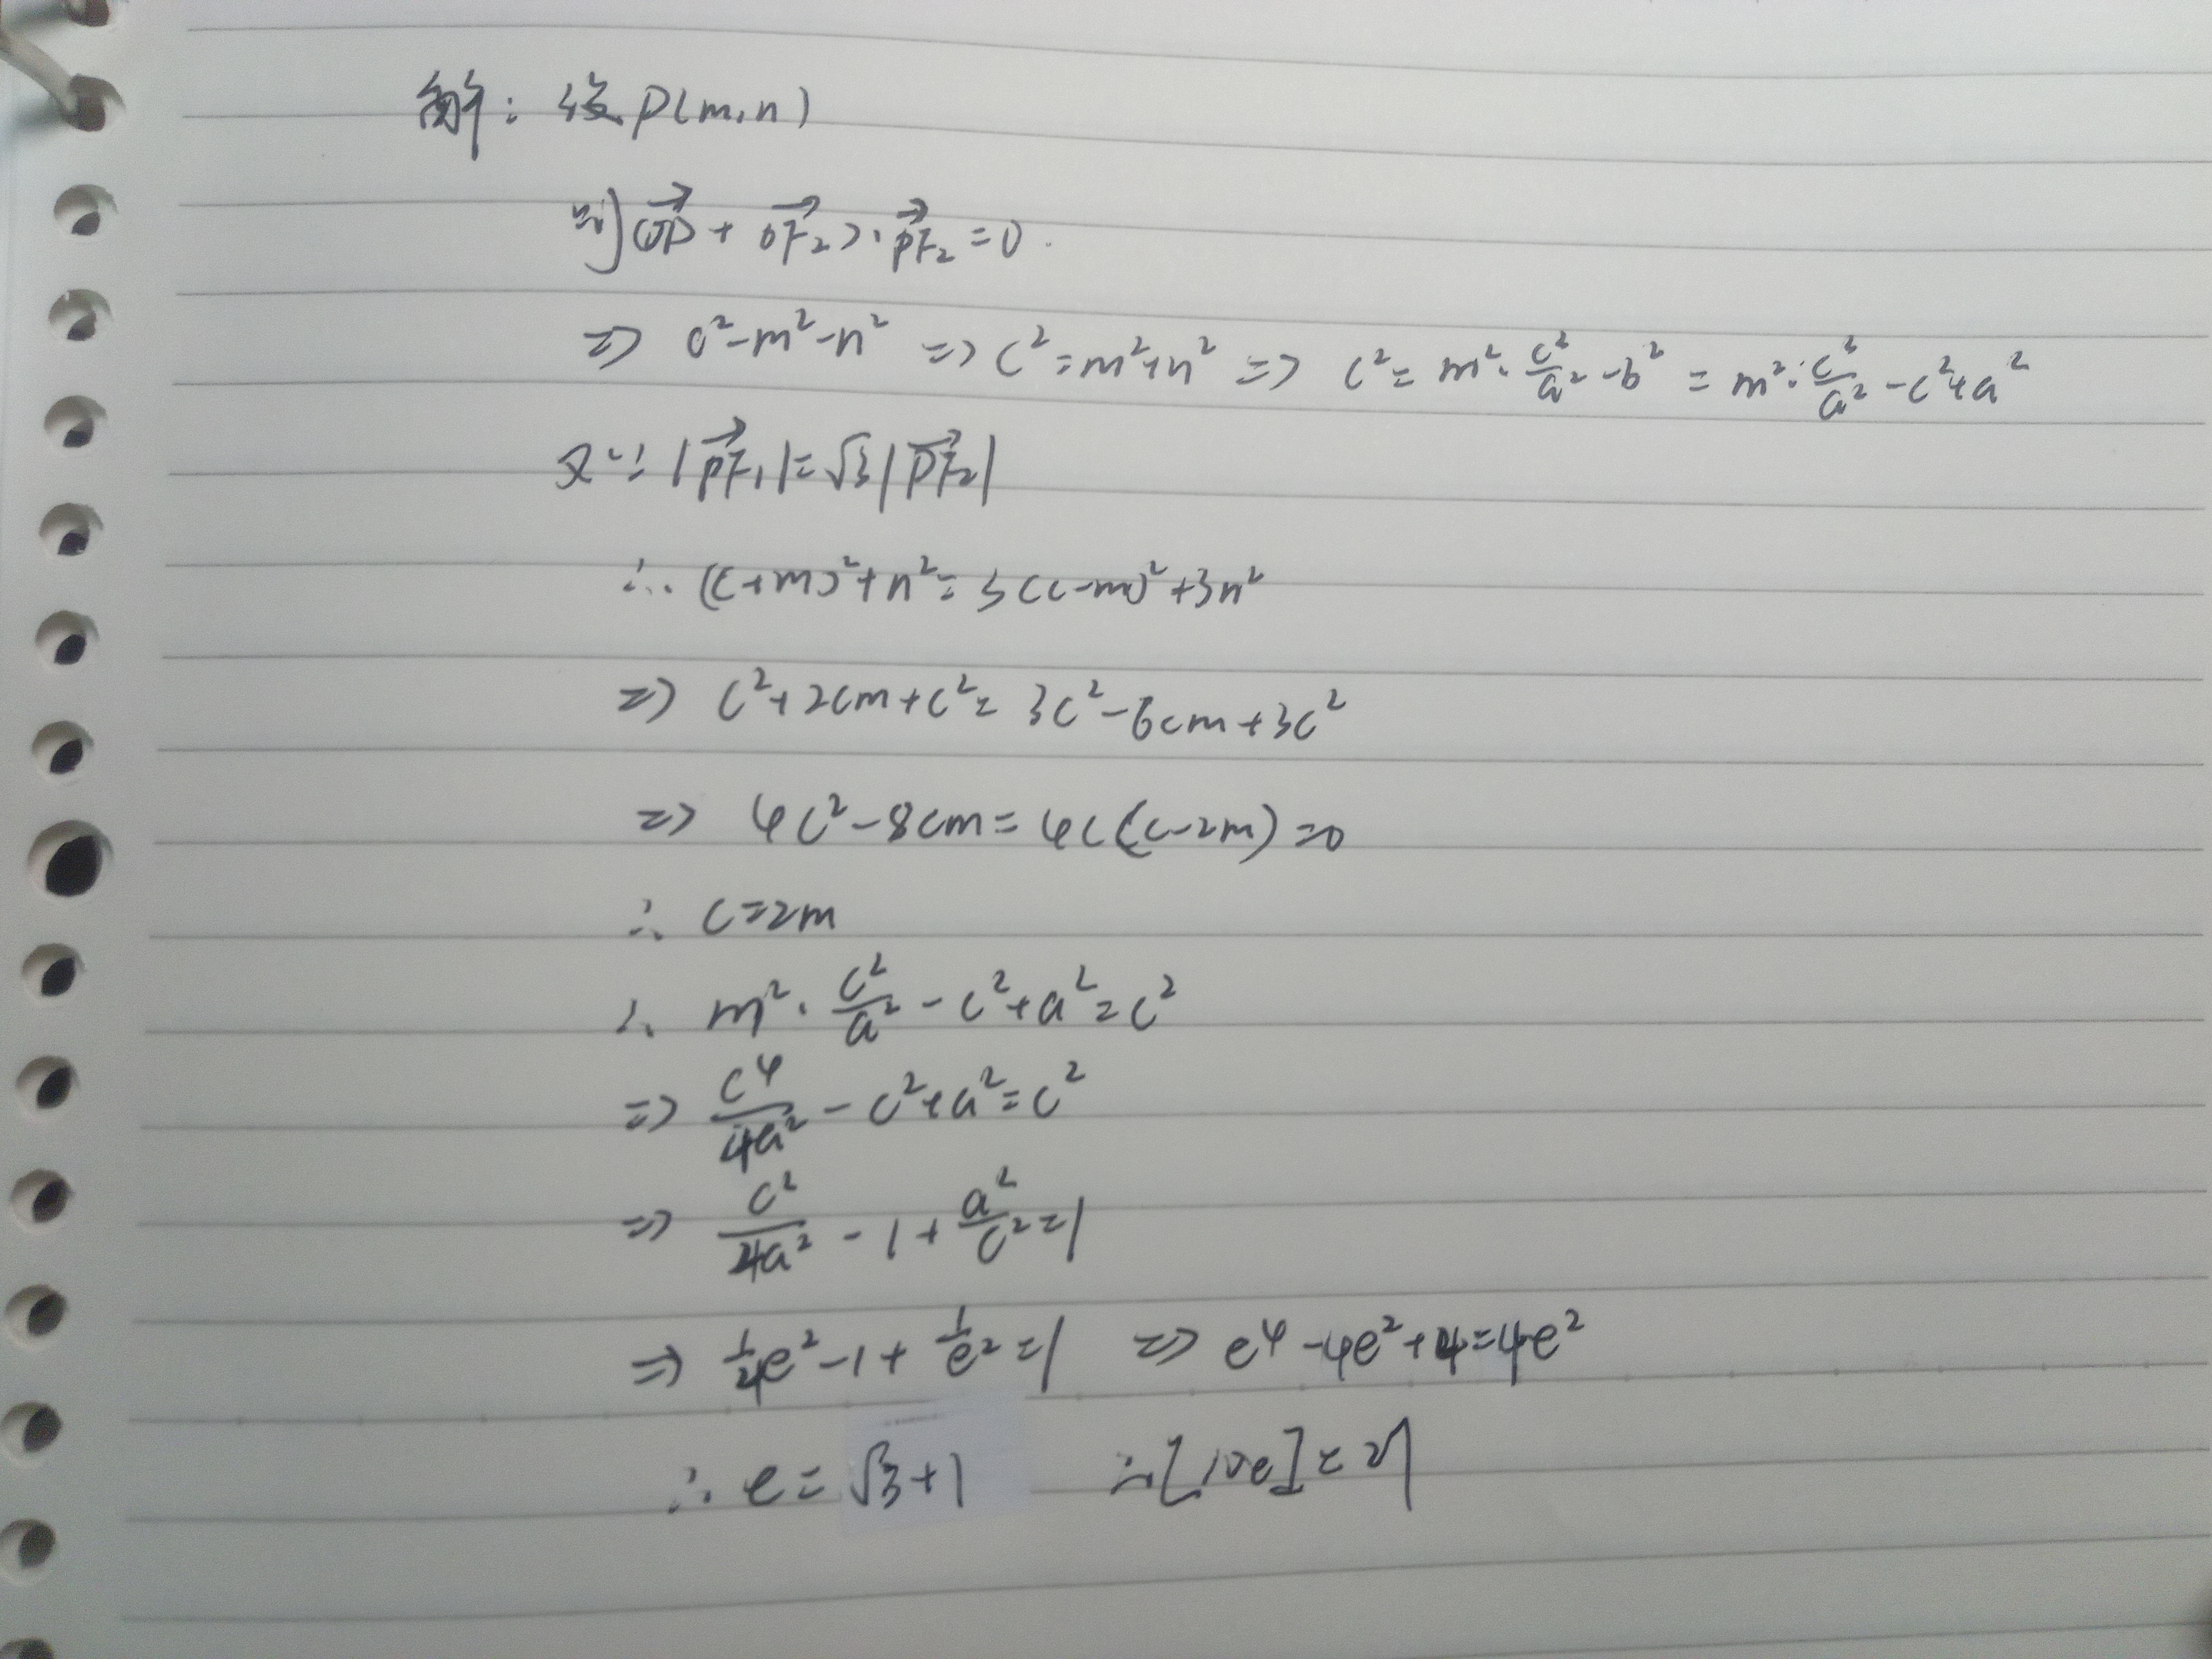 解：设P(m,n)
则(OP⃗ + OF₂⃗)·PF₂⃗ =0.
⇒ c²-m²-n² ⇒ c²=m²+n² ⇒ c²= m²·c²/a² -b² = m²·c²/a² -c²+a²
又∵ |PF₁⃗|=√3|PF₂⃗|
∴ (c+m)²+n²=3(c-m)²+3n²
⇒ c²+2cm+c²= 3c²-6cm+3c²
⇒ 4c²-8cm=4c(c-2m)=0
∴ c=2m
∴ m²·c²/a² -c²+a²=c²
⇒ c⁴/4a² -c²+a²=c²
⇒ c²/4a² -1+a²/c²=1
⇒ 1/4e²-1+1/e²=1 ⇒ e⁴-4e²+4=4e²
∴ e= √3+1 ∴[10e]=27